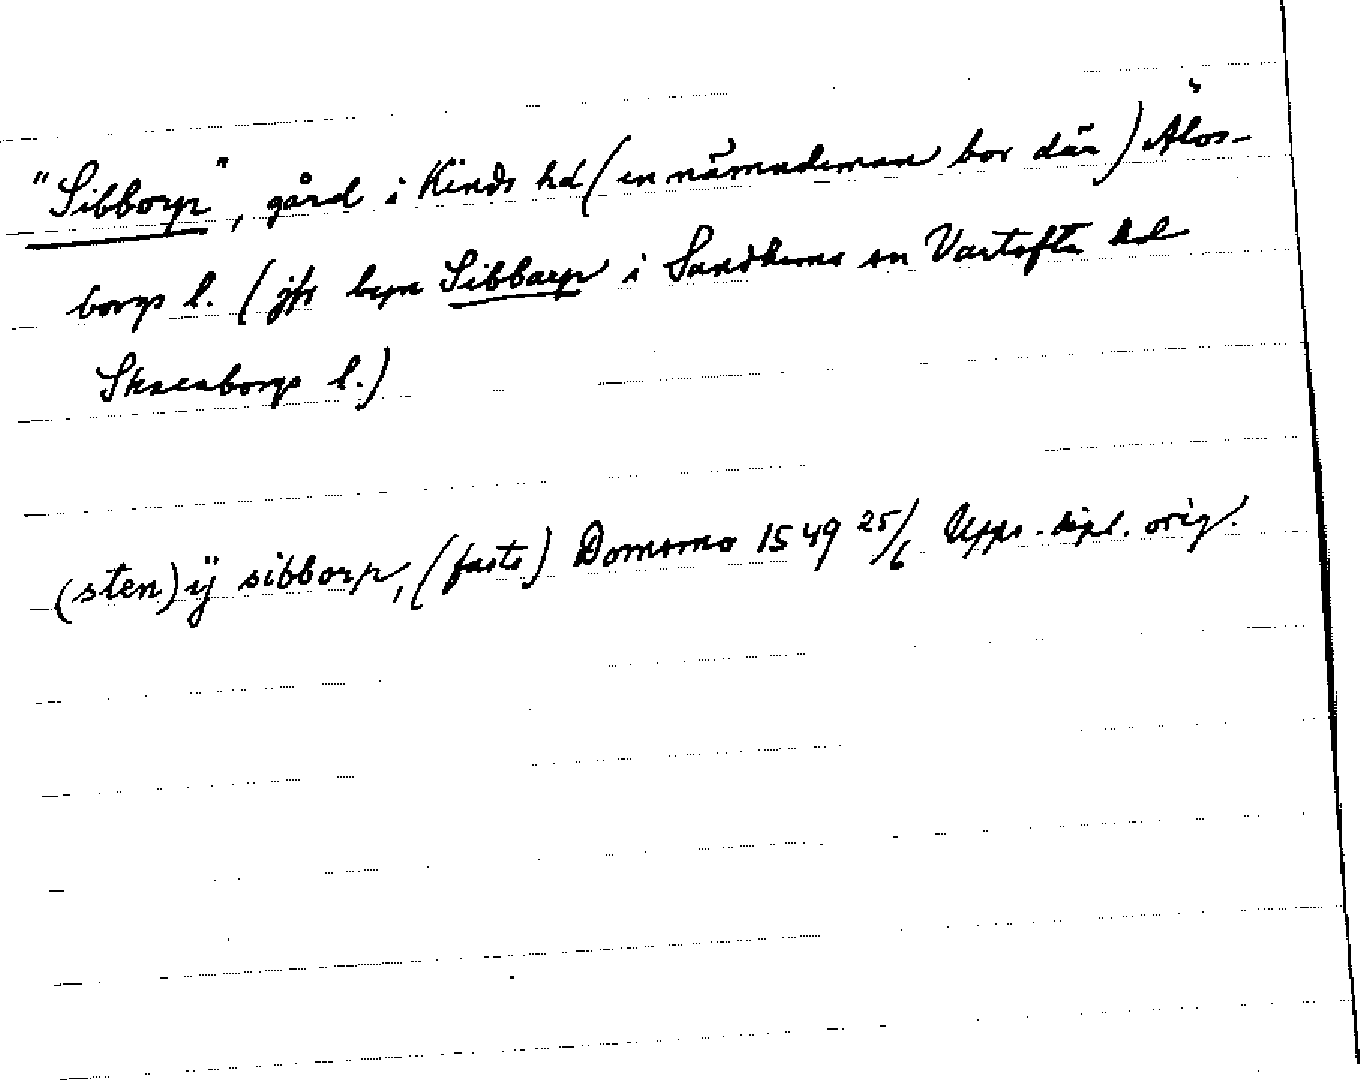 "Sibborp", gård i Kinds hd (en nämndeman bor där) Älvs-
borgs l. (jfr byn Sibbarp i Sandhems sn Vartofta hd
Skaraborgs l.)
(sten) ÿ sibborp, (faste) Domsmo 1549 25/6 Upps. dipl. orig.